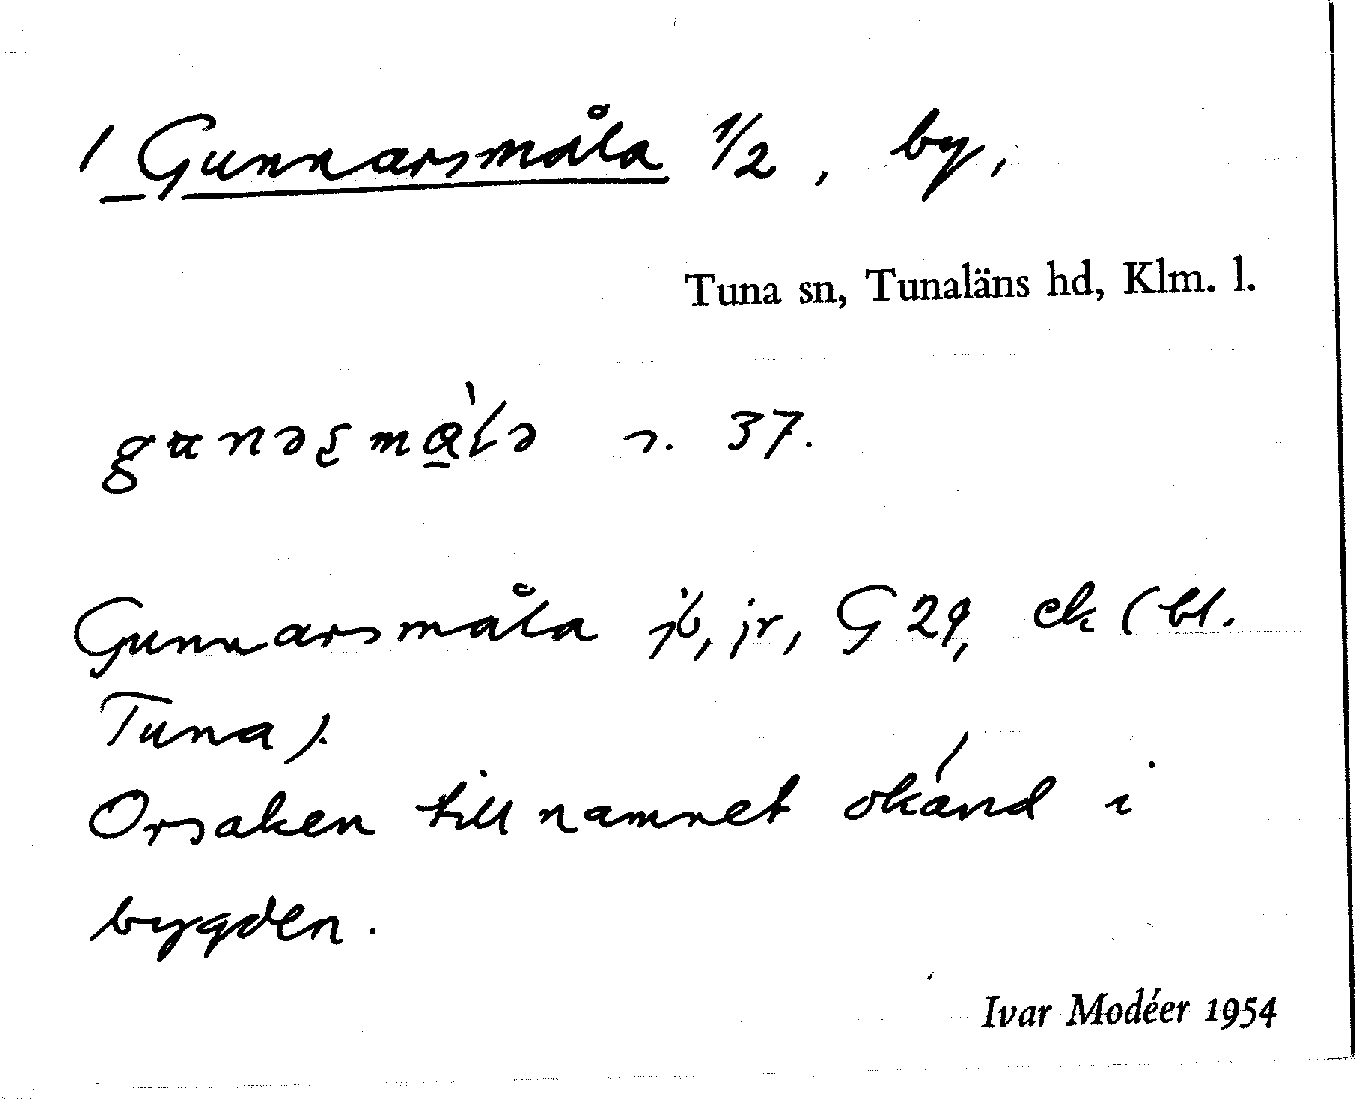 1 Gunnarsmåla 1/2, by,
Tuna sn, Tunaläns hd, Klm. l.
s. 37.
Gunnarsmåla jb, jr, G 29, ek (bl.
Tuna).
Orsaken till namnet okänd i
bygden.
Ivar Modéer 1954